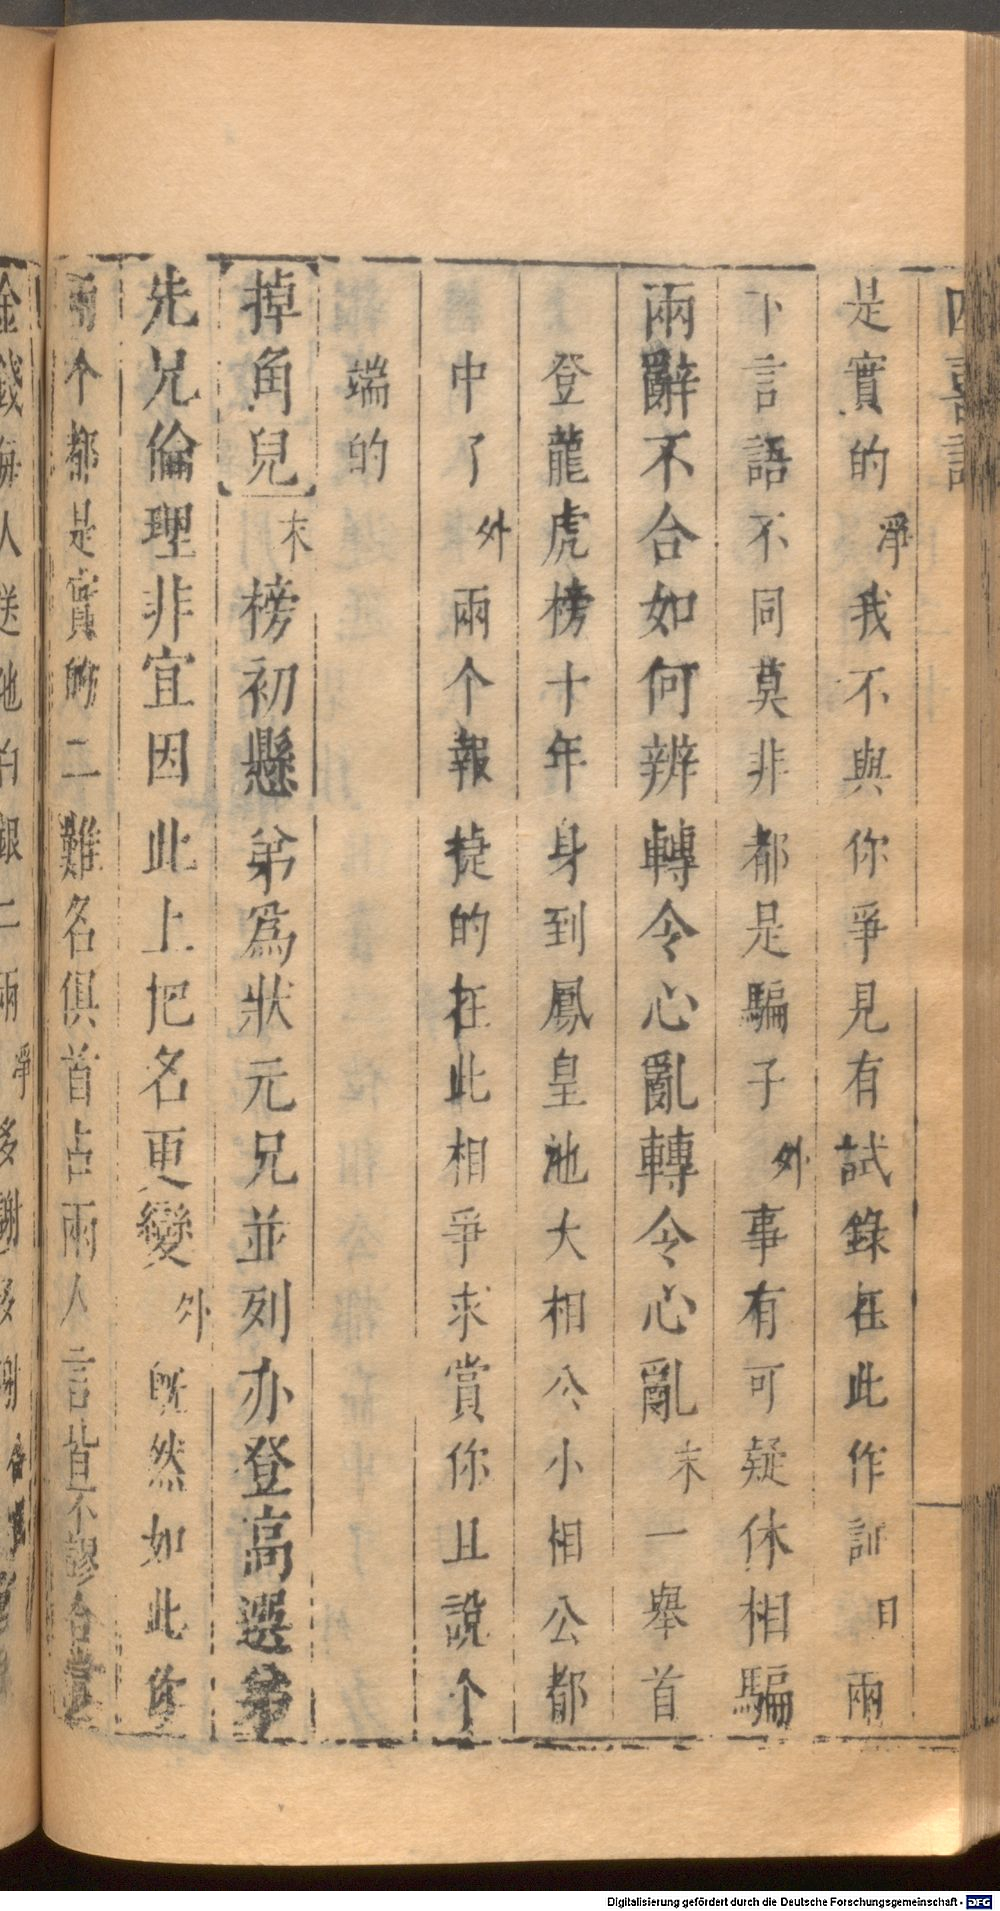 四喜記
是實的淨我不與你爭見有試錄在此作証日兩
下言語不同莫非都是騙子外事有可疑休相騙
兩辭不合如何辨轉令心亂轉令心亂末一舉首
登龍虎榜十年身到鳳皇池大相公小相公都
中了外兩个報捷的在此相爭求賞你且說个
端的
【掉角兒】末榜初懸弟爲狀元兄並列亦登高選弟
先兄倫理非宜因此上把名更變外既然如此你
兩个都是實的二難名俱首占兩人言皆不謬合當
金錢每人送他白銀二兩淨多謝多謝
Digitalisierung gefördert durch die Deutsche Forschungsgemeinschaft - DFG